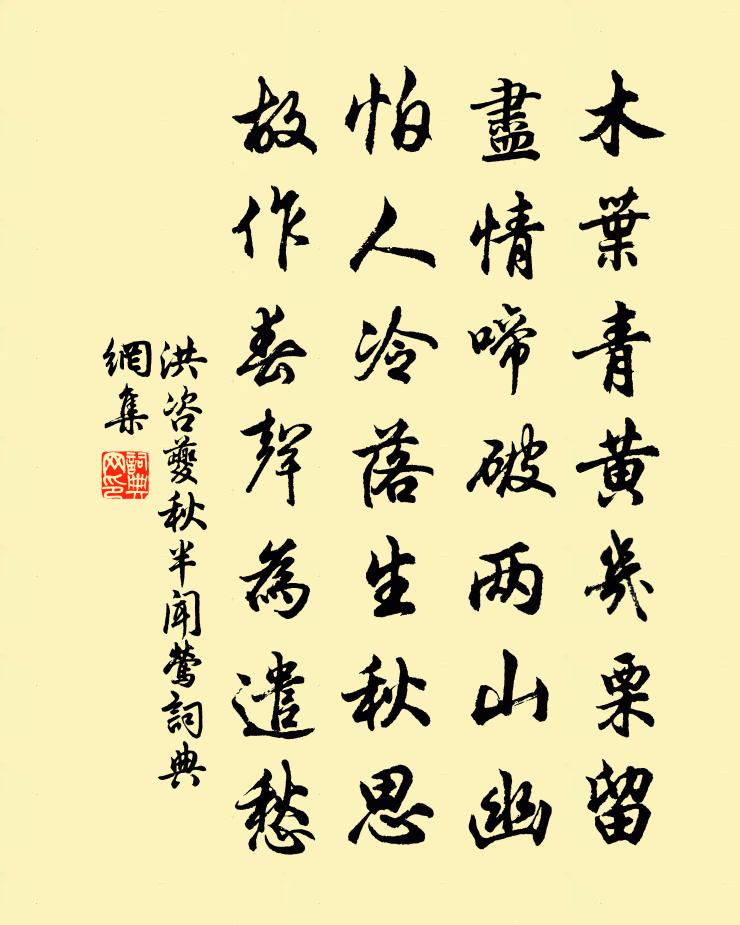 木葉青黃幾栗留
盡情啼破两山幽
怕人冷落生秋思
故作春聲為遣愁
洪咨夔秋半聞鶯詞典
網集
詞典網印